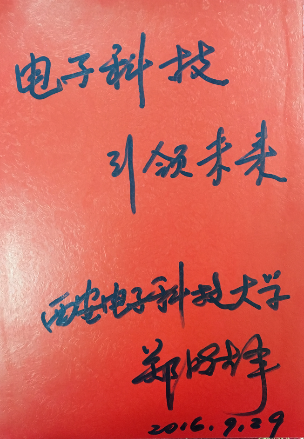 电子科技
引领未来
西安电子科技大学
郑晓静
2016.9.29